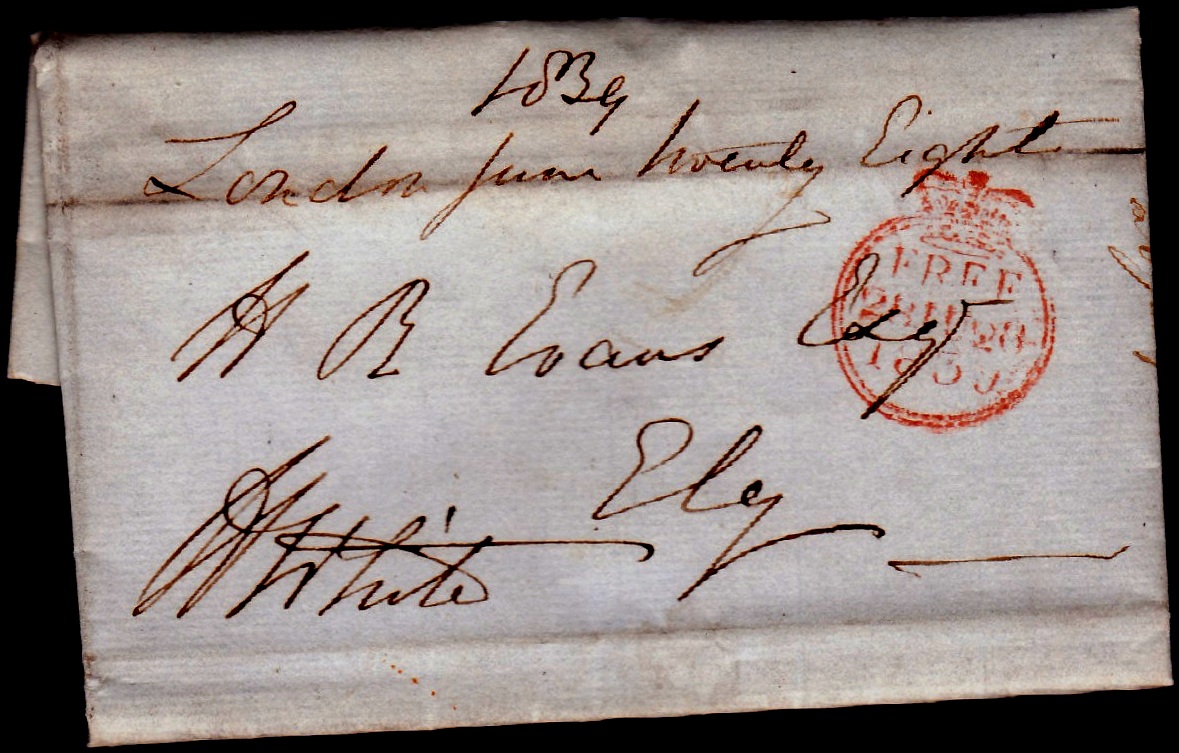 1839
London June twenty Eight
H R Evans Esqr
Ely
FREE
28 JU 28
1839